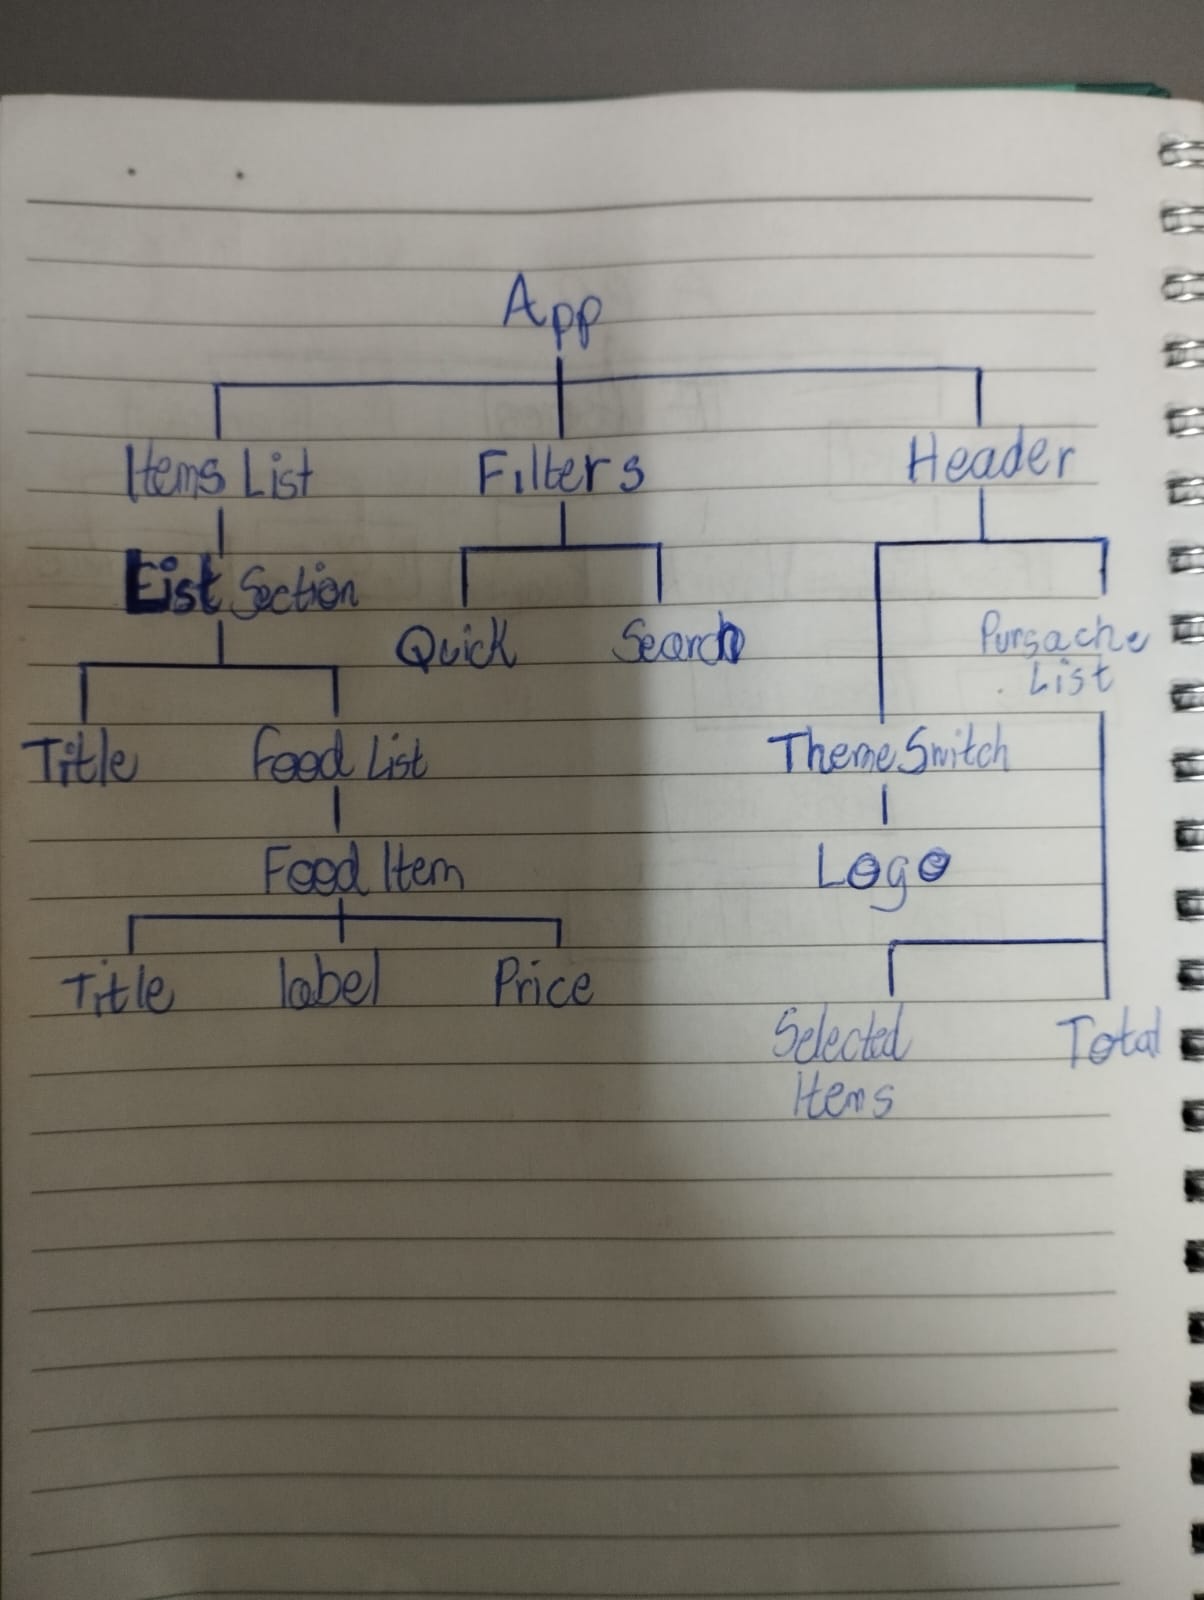 App
Items List Filters Header
List Section
Quick Search Pursache
List
Title Food List Theme Switch
Food Item Logo
Title label Price
Selected Total
Items